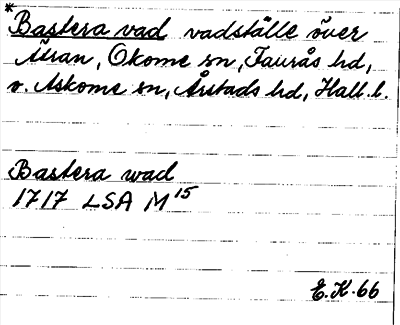 * Bastera vad vadställe över
Ätran, Okome sn, Faurås hd,
o. Askome sn, Årstads hd, Hall. l.
Bastera wad
1717 LSA M 15
E.K. 66